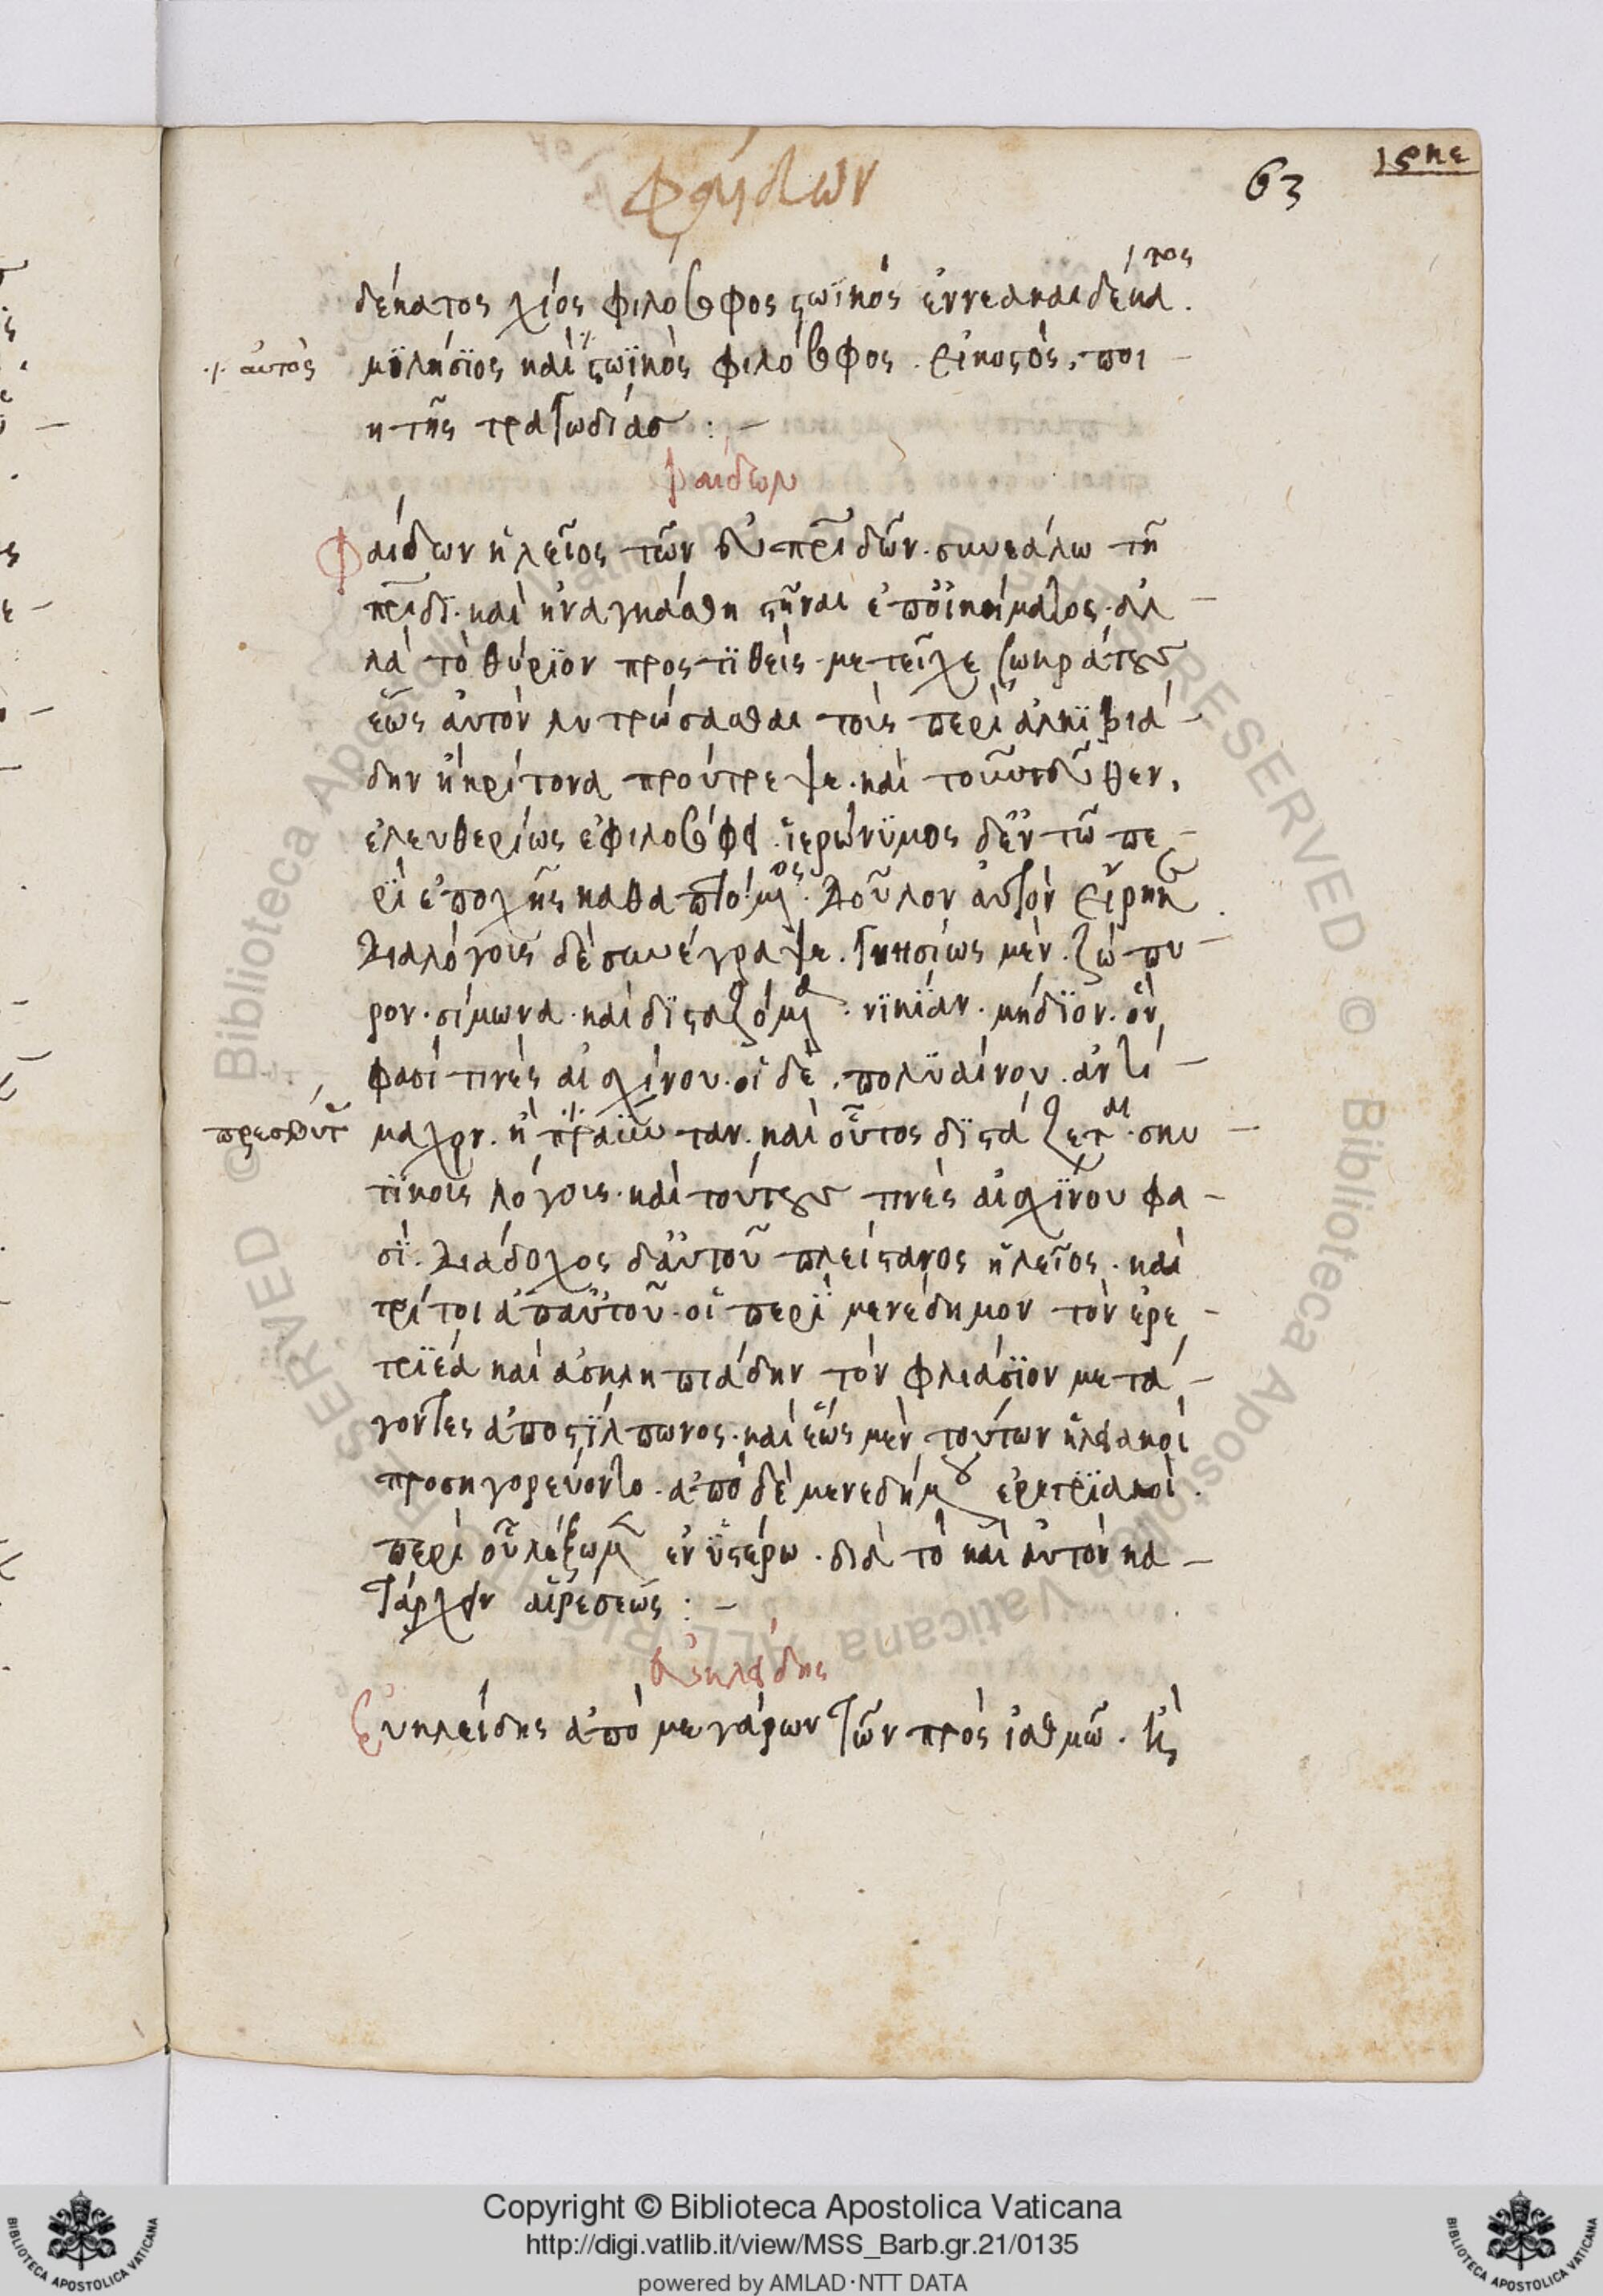 φαίδων
63
δέκατος χίος φιλόσοφος στωϊκός ἐννεακαιδέκα.
τος
·/· ἀυτὸς
μϊλήσϊος καὶ στωϊκὸς φιλόσοφος. εἰκοστός, ποι-
η τῆς τραγωδίας :-
φαίδων
Φαίδων ἠλεῖος τῶν εὐπατριδῶν. συνεάλω τῆ
πατρίδϊ. καὶ ἠναγκάσθη στῆναι ἐποἰκήματος. ἀλ-
λὰ τὸ θύρϊον προστϊθεὶς μετεῖχε σωκράτους
ἕως ἀυτὸν λυτρώσασθαι τοὺς περὶ ἀλκϊβιά-
δην ἢ κρίτονα προύτρεψε. καὶ τοὐντεῦθεν,
ἐλευθερίως ἐφιλοσόφει. ἱερώνϋμος δἐν τῶ πε-
ρὶ ἐποχῆς καθαπτόμενος. δοῦλον ἀυτὸν εἴρηκε
διαλόγους δὲ συνέγραψε. γνησίως μὲν. ζώπυ-
ρον. σίμωνα. καὶ δϊσταζόμενα. νϊκίαν. μήδϊον. ὃν
φασί τινὲς αἰσχίνου. οἱ δὲ, πολϋαίνου. ἀντί-
πρεσβύτ
μαχον. ἢ πραΰταν. καὶ οὗτος δϊστάζεται. σκυ-
τϊκοὺς λόγους. καὶ τούτους τινὲς αἰσχϊνου φα-
σϊ. διάδοχος δἀυτοῦ πλείστανος ἠλεῖος. καὶ
τρίτοι ἀπἀυτοῦ. οἱ περὶ μενέδημον τὸν ἐρε-
τρϊέα καὶ ἀσκληπιάδην τὸν φλιάσϊον μετά-
γοντες ἀπο στϊλπωνος. καὶ ἕως μὲν τούτων ἠλειακοὶ
προσηγορεύοντο. ἀπὸ δὲ μενεδήμου ἐρετρϊακοὶ.
περὶ οὗ λέξωμεν ἐν ὑστέρω. διὰ τὸ καὶ ἀυτὸν κα-
τάρχειν αἱρέσεως :-
Εὐκλείδης
Εὐκλείδης ἀπὸ μεγάρων τῶν πρὸς ἰσθμῶ. ἢ
Copyright © Biblioteca Apostolica Vaticana
http://digi.vatlib.it/view/MSS_Barb.gr.21/0135
powered by AMLAD·NTT DATA